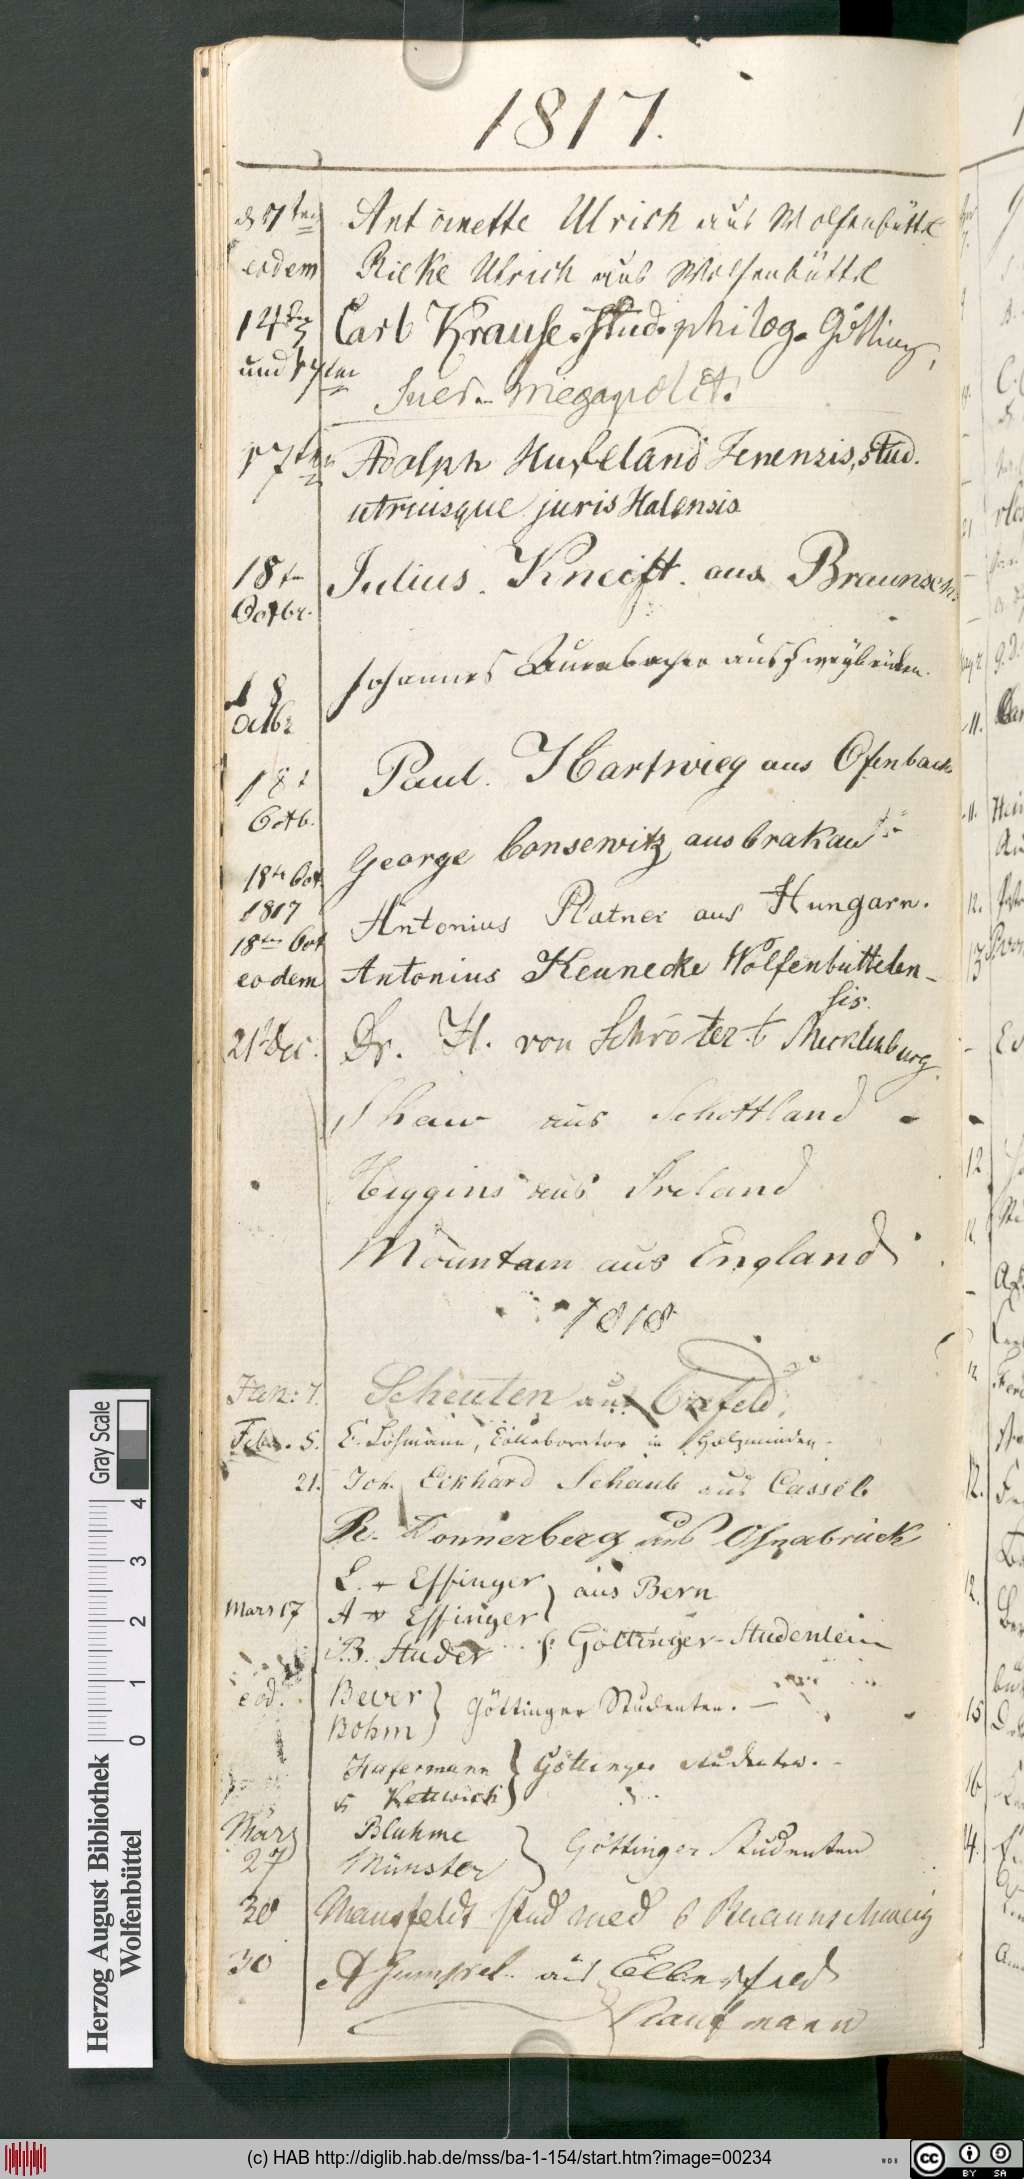 1817.
d 7ten Antoinette Ulrich aus Wolfenbüttel
eodem Rieke Ulrich aus Wolfenbüttel
14ten Carl Krause. Stud. philog. Götting,
und 17ten
Suer.- megapolit.
17ten Adolph Hufeland Jenensis, stud.
utriusque juris Halensis
18ten Julius. Kneift. aus Braunschw.
Octbr.
Johannes aus Zweybrücken.
18
Octbr Paul. Hartwieg aus Ofenbach
18t
Octb.
George Consewitz aus Crakau
18te Oct
1817 Antonius Platner aus Hungarn.
18ten Oct
eodem Antonius Keunecke Wolfenbüttelen-
sis.
21t Dec. Dr. H. von Schröter. Mecklenburg.
Shaw aus Schottland
Higgins aus Ireland
Mountain aus England
1818
Jan: 7. Scheuten aus Crefeld.
Febr. 5. E. Lohmann, Collaborator in Holzminden.
21. Joh. Eckhard Schaub aus Cassel.
R. Donnerberg aus Osnabrück
L. v Effinger
aus Bern
Mars 17 A v Effinger
B. Studer Göttinger-Studenlein
eod. Bever
Göttinger Studenten.
Bohm
Hafermann Göttinger Studenten.
Kettwich
März Bluhme
Göttinger Studenten
27 Münster
30 Mansfeld stud med Braunschweig
30 A Gumpel. aus Elberfeld
Kaufmann
Herzog August Bibliothek
Wolfenbüttel
0 1 2 3 4
Gray Scale
(c) HAB http://diglib.hab.de/mss/ba-1-154/start.htm?image=00234
WDB
CC BY SA